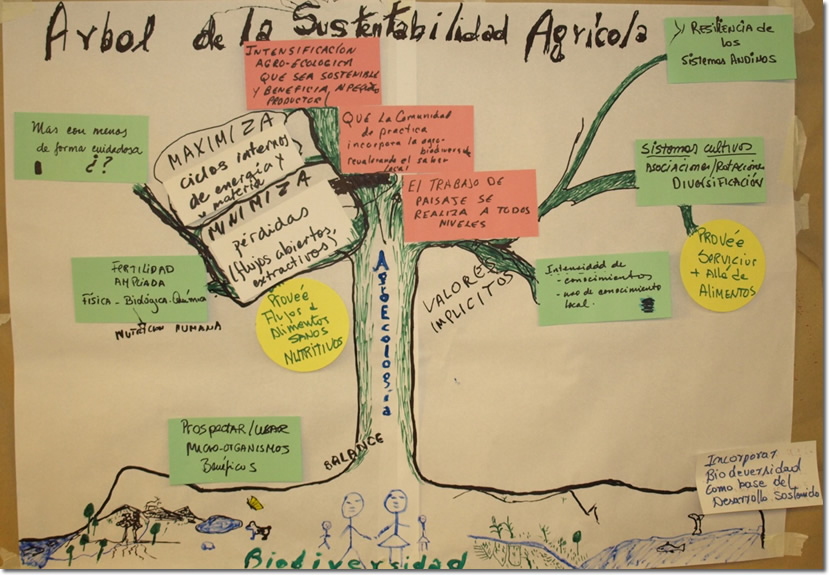 Arbol de la Sustentabilidad Agrícola
INTENSIFICACION
AGRO-ECOLOGICA
QUE SEA SOSTENIBLE
Y BENEFICIA AL PEQUEÑO
PRODUCTOR
y RESILIENCIA de
los
SISTEMAS ANDINOS
Mas con menos
de forma cuidadosa
¿?
MAXIMIZA
ciclos internos
de energía y
materia
MINIMIZA
pérdidas
(flujos abiertos,
extractivos)
QUE LA COMUNIDAD
de practica
incorpora la agro-
biodiversidad
revalorando el saber
local
EL TRABAJO DE
PAISAJE SE
REALIZA A TODOS
NIVELES
Sistemas cultivos
ASOCIACIONES/ROTACIONES
DIVERSIFICACIÓN
FERTILIDAD
AMPLIADA
FÍSICA - Biológica - Química
NUTRICION HUMANA
PROVÉE
Flujos d
Alimentos
SANOS
NUTRITIVOS
AgroEcología
VALORES
IMPLICITOS
Intensidad de
- conocimientos
- uso de conocimiento
local.
PROVÉE
SERVICIOS
+ Allá de
ALIMENTOS
PROSPECTAR/
MICRO-ORGANISMOS
Benéficos
BALANCE
Incorporar
Biodeversidad
como base del
Desarrollo Sostenido
Biodiversidad